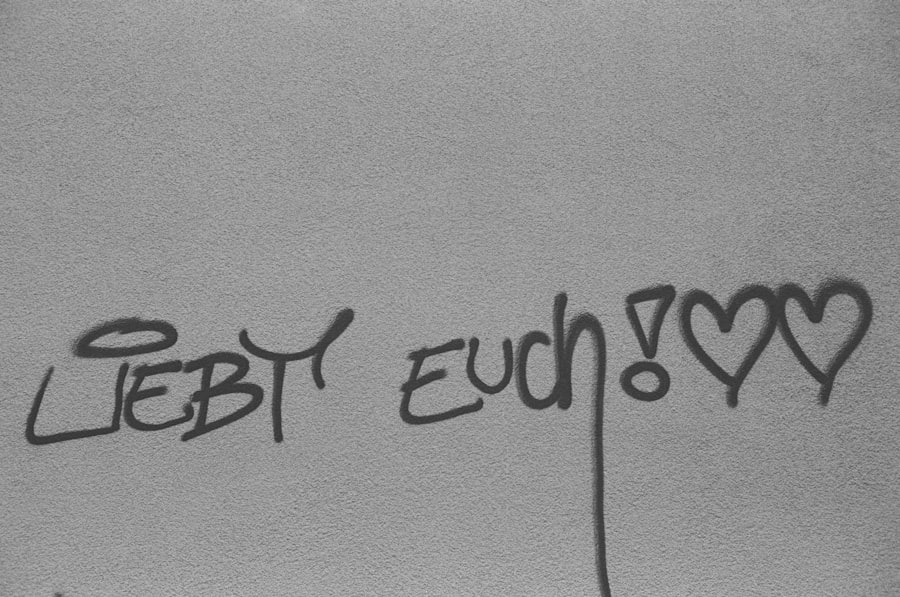 LIEBT EUCh!♡♡